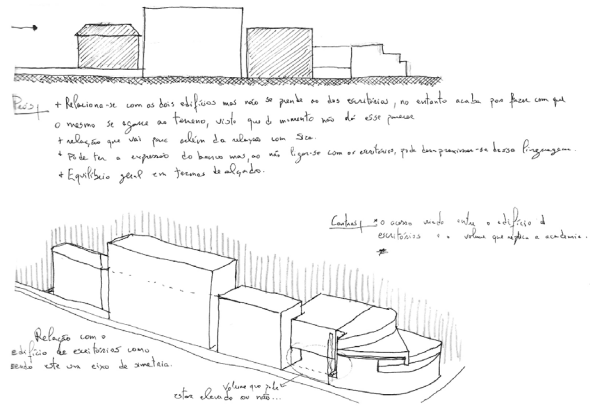 + Relaciona-se com os dois edifícios mas não se prende ao dos escritórios, no entanto acaba por fazer com que
o mesmo se agarre ao terreno, visto que de momento não dá esse parecer
+ relação que vai para além da relação com
+ Pode ter a expressão do banco mas, ao não ligar-se com os escritórios, pode -se dessa linguagem.
+ Equilíbrio geral em termos de alçados.
Contras + o acesso sendo entre o edifício de
escritórios e o volume que a academia.
Relação com o
edifício de escritórios como
sendo este um eixo de simetria.
Volume que pode
estar elevado ou não...